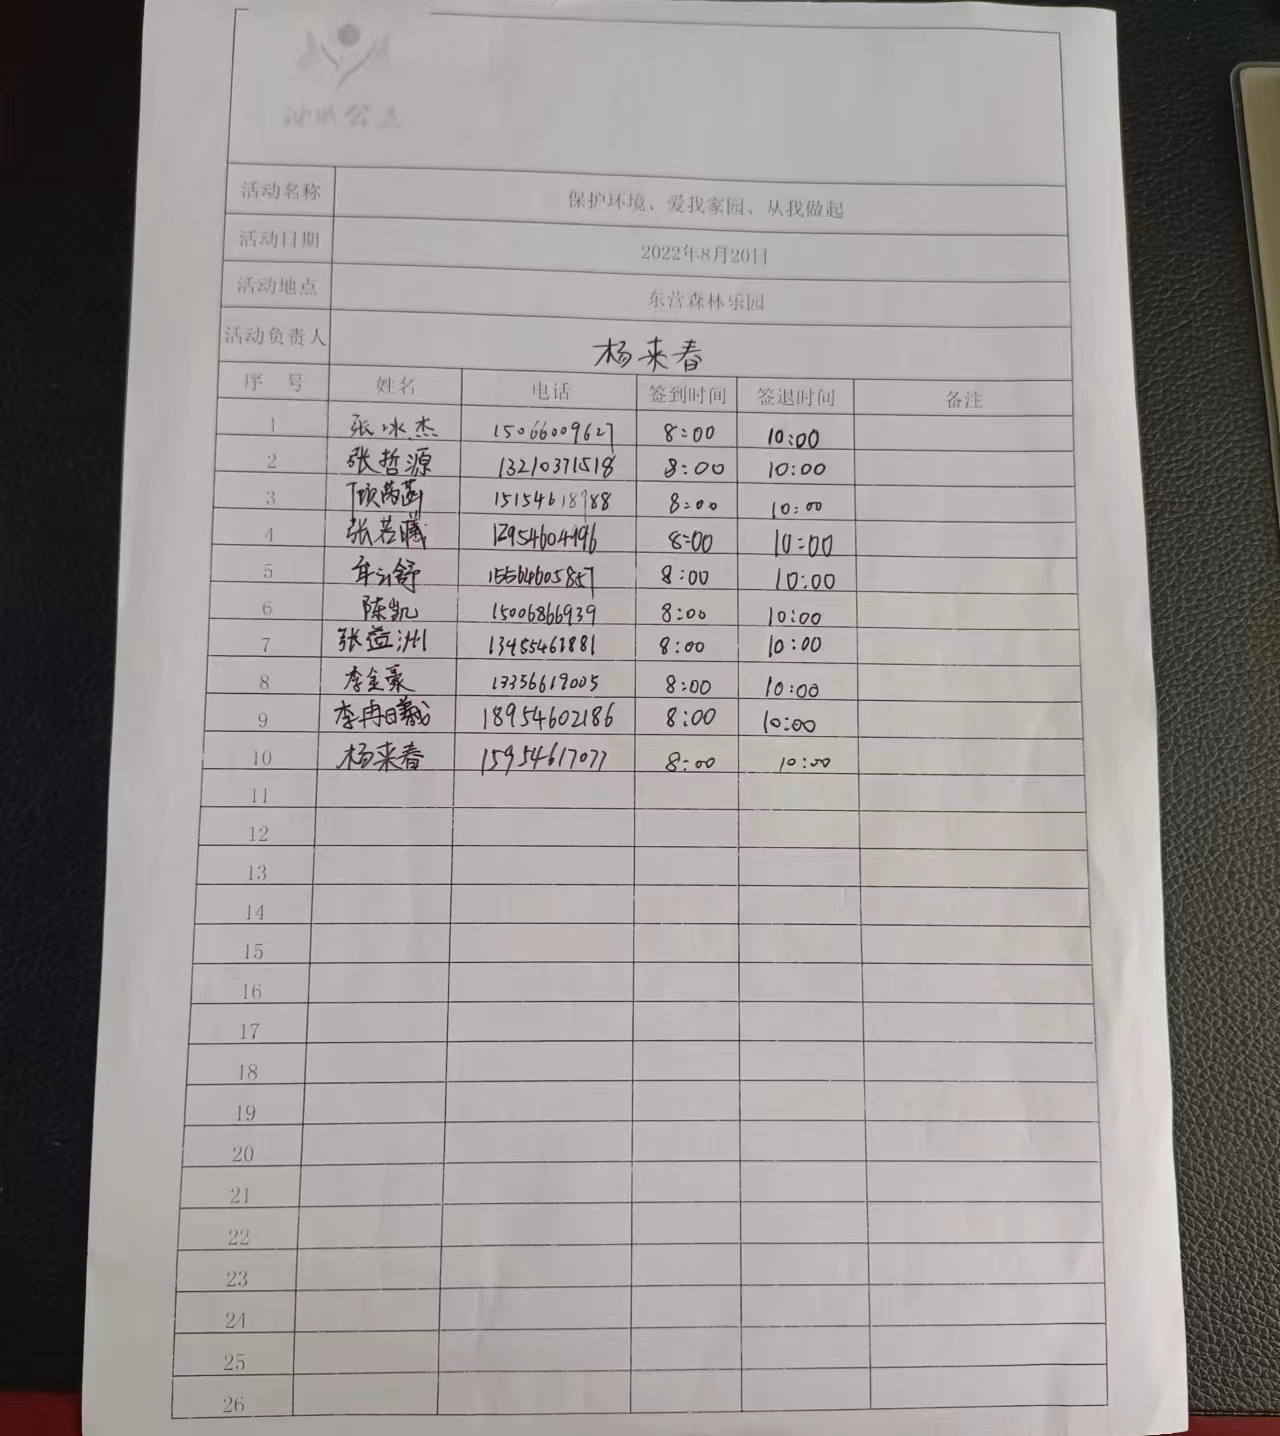 活动名称 保护环境、爱我家园、从我做起
活动日期 2022年8月20日
活动地点 东营森林乐园
活动负责人 杨来春
序 号 姓名 电话 签到时间 签退时间 备注
1 张冰杰 15066009627 8:00 10:00
2 张哲源 13210371518 8:00 10:00
3 15154618988 8:00 10:00
4 张若曦 8:00 10:00
5 牟云舒 15564605857 8:00 10:00
6 陈凯 15006866939 8:00 10:00
7 张益洲 13455461881 8:00 10:00
8 李金豪 13356619005 8:00 10:00
9 李冉曦 18954602186 8:00 10:00
10 杨来春 15954617077 8:00 10:00
11
12
13
14
15
16
17
18
19
20
21
22
23
24
25
26